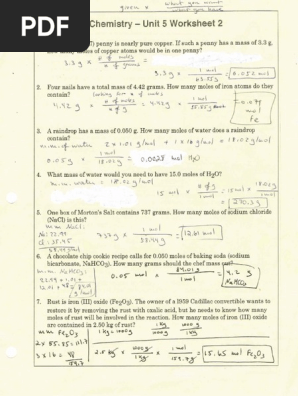 given # what you want
what you have
PDF
Chemistry – Unit 5 Worksheet 2
penny is nearly pure copper. If such a penny has a mass of 3.3 g,
how many moles of copper atoms would be in one penny?
3.3 g x # of moles / # of grams
3.3 g x 1 mol / 63.55 g = 0.052 mol
2. Four nails have a total mass of 4.42 grams. How many moles of iron atoms do they
contain? looking for # of mols
4.42 g x # mols / # of g = 4.42 g x 1 mol / 55.85 g
mol
Fe
3. A raindrop has a mass of 0.050 g. How many moles of water does a raindrop
contain?
m.m. of water 2 x 1.01 g/mol + 1 x 16 g/mol = 18.02 g/mol
0.05 g x 1 mol / 18.02 g = 0.0028 mol H2O
4. What mass of water would you need to have 15.0 moles of H2O?
m.m. water = 18.02 g/mol
15 mol x # of g / 1 mol = 15 mol x 18.02 g / 1 mol
= 270.3 g
5. One box of Morton's Salt contains 737 grams. How many moles of sodium chloride
(NaCl) is this?
mm NaCl:
Na: 22.99
Cl: 35.45
58.44 g/mol
737 g x 1 mol / 58.44 g = 12.61 mol
6. A chocolate chip cookie recipe calls for 0.050 moles of baking soda (sodium
bicarbonate, NaHCO3). How many grams should the chef mass out?
m.m. NaHCO3:
0.05 mol x 84.01 g / 1 mol = 4.2 g
NaHCO3
7. Rust is iron (III) oxide (Fe2O3). The owner of a 1959 Cadillac convertible wants to
restore it by removing the rust with oxalic acid, but he needs to know how many
moles of rust will be involved in the reaction. How many moles of iron (III) oxide
are contained in 2.50 kg of rust?
mm Fe2O3
1 kg = 1000 g
2 x 55.85 =
3 x 16 = 48
159.7
2.5 kg x 1000 g / 1 kg x 1 mol / 159.7 g = 15.65 mol Fe2O3